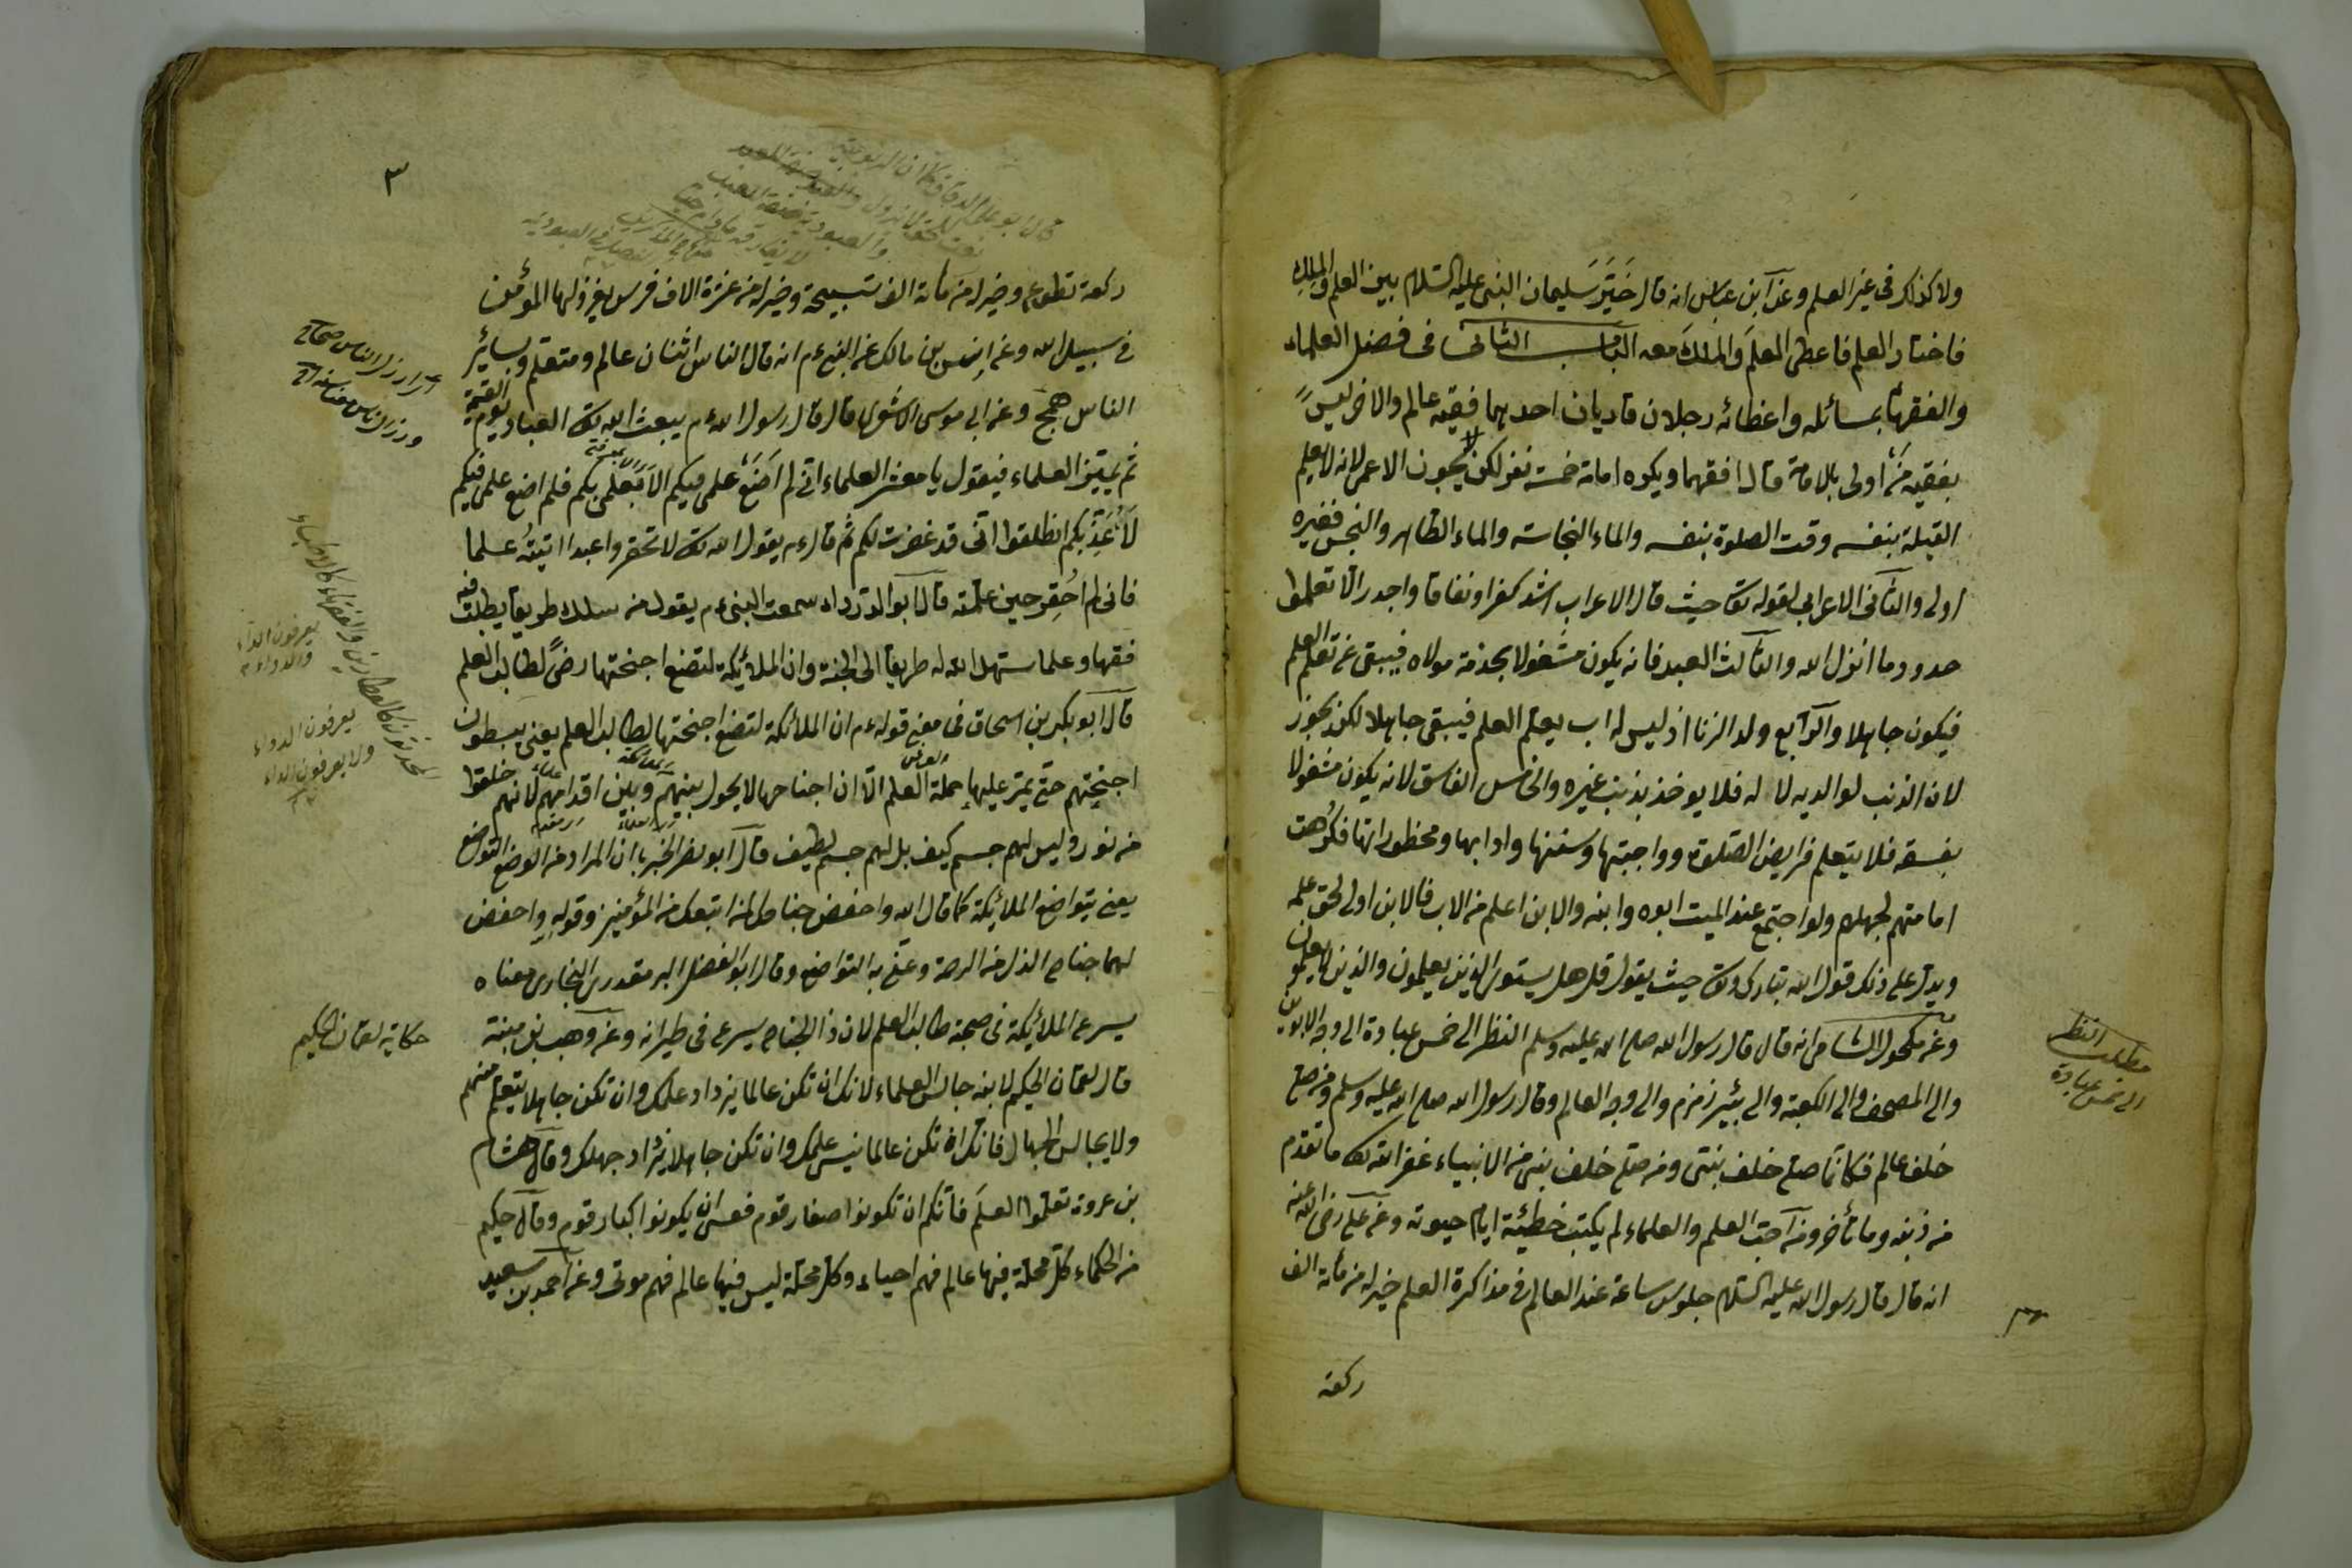 ولا كذلك في غير العلم وعن ابن عباس انه قال خَيَّرَ سليمان النبى عليه السلام بين العلم والملك
فاختار العلم فاعطى العلمَ والملكَ معه الباب الثانى فى فضل العلماء
والفقهاء بمسائله واعطائه رجلان قاريان احدهما فقيه عالم والاخر ليس
بفقيه من اولى بالامامة قال افقهما ويكره امامة خمسة نفر لكن يجوز الاعمى لانه لا يعلم
القبلة بنفسه وقت الصلوة بنفسه والماء النجاسة والماء الطاهر والنجس فغيره
اولى والثانى الاعرابى لقوله تعا حيث قال الاعراب اشد كفرا ونفاقا واجدر الا تعلموا
حدود ما انزل الله والثالث العبد فانه يكون مشغولا بخدمة مولاه فيبقى عن تعلم العلم
فيكون جاهلا والرابع ولد الزنا اذ ليس له اب يعلم العلم فيبقى جاهلا لكن يجوز
لان الذنب لوالديه لا له فلا يوخذ بذنب غيره والخامس الفاسق لانه يكون مشغولا
بفسقه فلا يتعلم فرايض الصلوة وواجبتها وسننها وادابها ومحظوراتها فكرهت
امامتهم لجهلهم ولو اجتمع عند الميت ابوه وابنه والابن اعلم من الاب فالابن اولى لحق علمه
ويدل على ذلك قول الله تبارك وتعا حيث يقول قل هل يستوى الذين يعلمون والذين لا يعلمون
وعن مكحول الشامى انه قال قال رسول الله صلى الله عليه وسلم النظر الى خمس عبادة الى وجه الابوين
والى المصحف والى الكعبة والى بئير زمزم والى وجه العالم وقال رسول الله صلى الله عليه وسلم ومن صلى
خلف عالم فكانما صلى خلف بنتى ومن صلى خلف بنى من الانبياء غفر الله له ما تقدم
من ذنبه وما تأخر ومن احب العلم والعلماء لم يكتب خطيئة ايام حيوته وعن على رضى الله عنه
انه قال قال رسول الله عليه السلام جلوس ساعة عند العالم فى مذاكرة العلم خير له من مائة الف
ركعة
مطلب النظر
الى خمس عبادة
٣
ركعة تطوع وخير له من مائة الف تسبيحة وخير له من عشرة الاف فرس يغزو لها المؤمن
فى سبيل الله وعن انس بن مالك عن النبى ءم انه قال الناس اثنان عالم ومتعلم وسائر
الناس همج وعن ابى موسى الاشعرى قال قال رسول الله ءم يبعث الله تعا العباد يوم القيمة
ثم يميز العلماء فيقول يا معشر العلماء انى لم اضع علمى فيكم الا لعلمى بكم فلم اضع علمى فيكم
لاعذبكم انطلقوا انى قد غفرت لكم ثم قال ءم يقول الله تعا لا تحقروا عبدا اتيته علما
فانى لم احقره حين علمته قال ابو الدرداء سمعت النبى ءم يقول من سلك طريقا يطلب فيه
فقها وعلما سهل الله له طريقا الى الجنة وان الملائكة لتضع اجنحتها رضى لطالب العلم
قال ابو بكر بن اسحاق فى معنى قوله ءم ان الملائكة لتضع اجنحتها لطالب العلم يعنى يبسطون
اجنحتهم حتى يمر عليها حملة العلم الا ان اجناحها لا يحول بينهم وبين اقدامهم لانهم خلقوا
من نور وليس لهم جسم كيف بل لهم جسم لطيف قال ابو نصر الخبر بان المراد من الوضع التواضع
يعنى يتواضع الملائكة كما قال الله واخفض جناحك لمن اتبعك من المؤمنين وقوله واخفض
لهما جناح الذل من الرحمة وعنى به التواضع وقال ابو الفضل البخارى معناه
يسرع الملائكة فى صحبة طالب العلم لان ذا الجناح يسرع فى طيرانه وعن وهب بن منبه
قال لقمان الحكيم لابنه جالس العلماء لانك ان تكن عالما يزداد علمك وان تكن جاهلا يتعلم منهم
ولا يجالس الجهال فانك ان تكن عالما نيس علمك وان تكن جاهلا يزداد جهلك وقال هشام
بن عروة تعلموا العلم فانكم ان تكونوا صغار قوم فعسى ان يكونوا كبار قوم وقال حكيم
من الحكماء كل محلة فيها عالم فهم احياء وكل محلة ليس فيها عالم فهم موتى وعن احمد بن سعيد
يعرفون الداء
والدواء
يعرفون الدواء
ولا يعرفون الداء
حكاية لقمان الحكيم